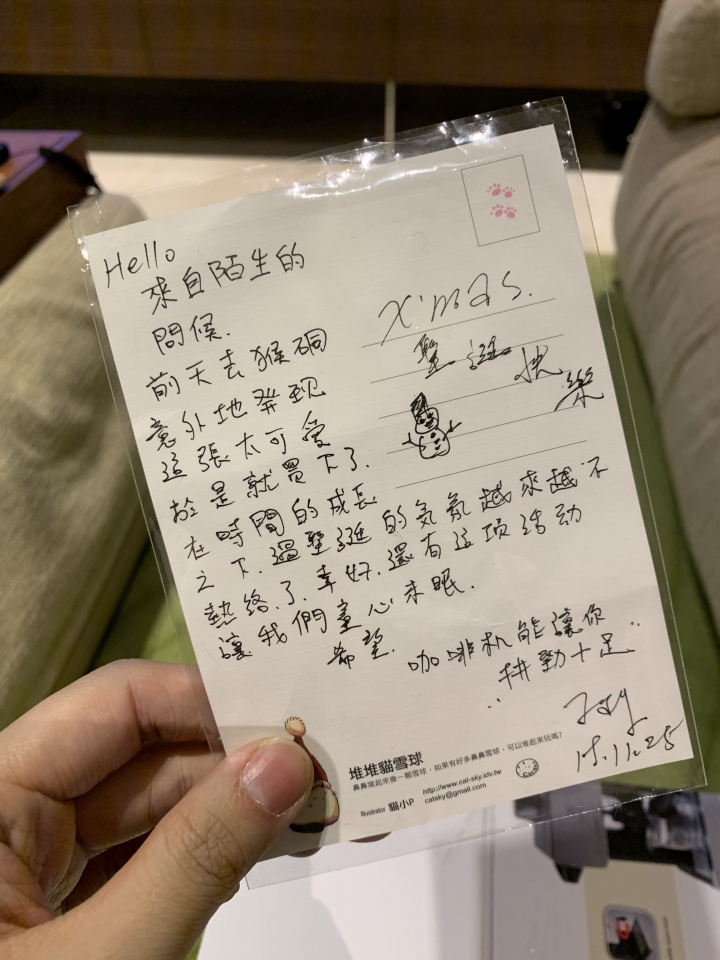 Hello
來自陌生的
問候.
前天去猴硐
意外地發现
這張太可愛
於是就買下了.
在時間的成長
之下.過聖誕的気氛越來越不
熱絡.了.幸好.還有這项活动
讓我們童心未眠.
希望.
咖啡机能讓你
拼勁十足
15.11.25
X'mas.
聖誕快樂
堆堆貓雪球
鼻鼻窩起來像一顆雪球，如果有好多鼻鼻雪球，可以堆起來玩嗎?
Illustrator 貓小P
http://www.cat-sky.idv.tw
catsky@gmail.com